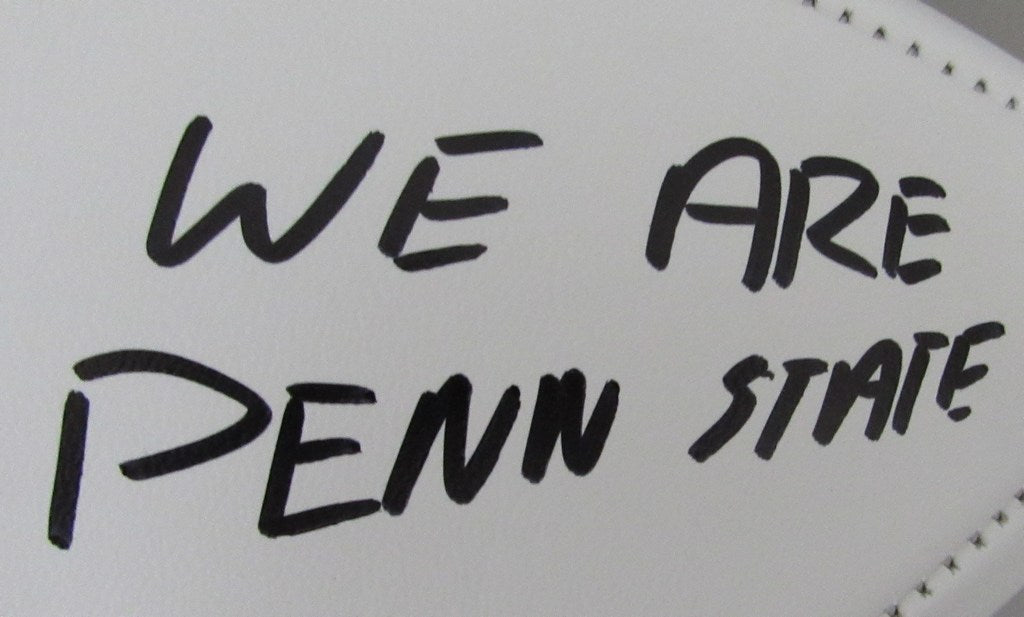 WE ARE
PENN STATE